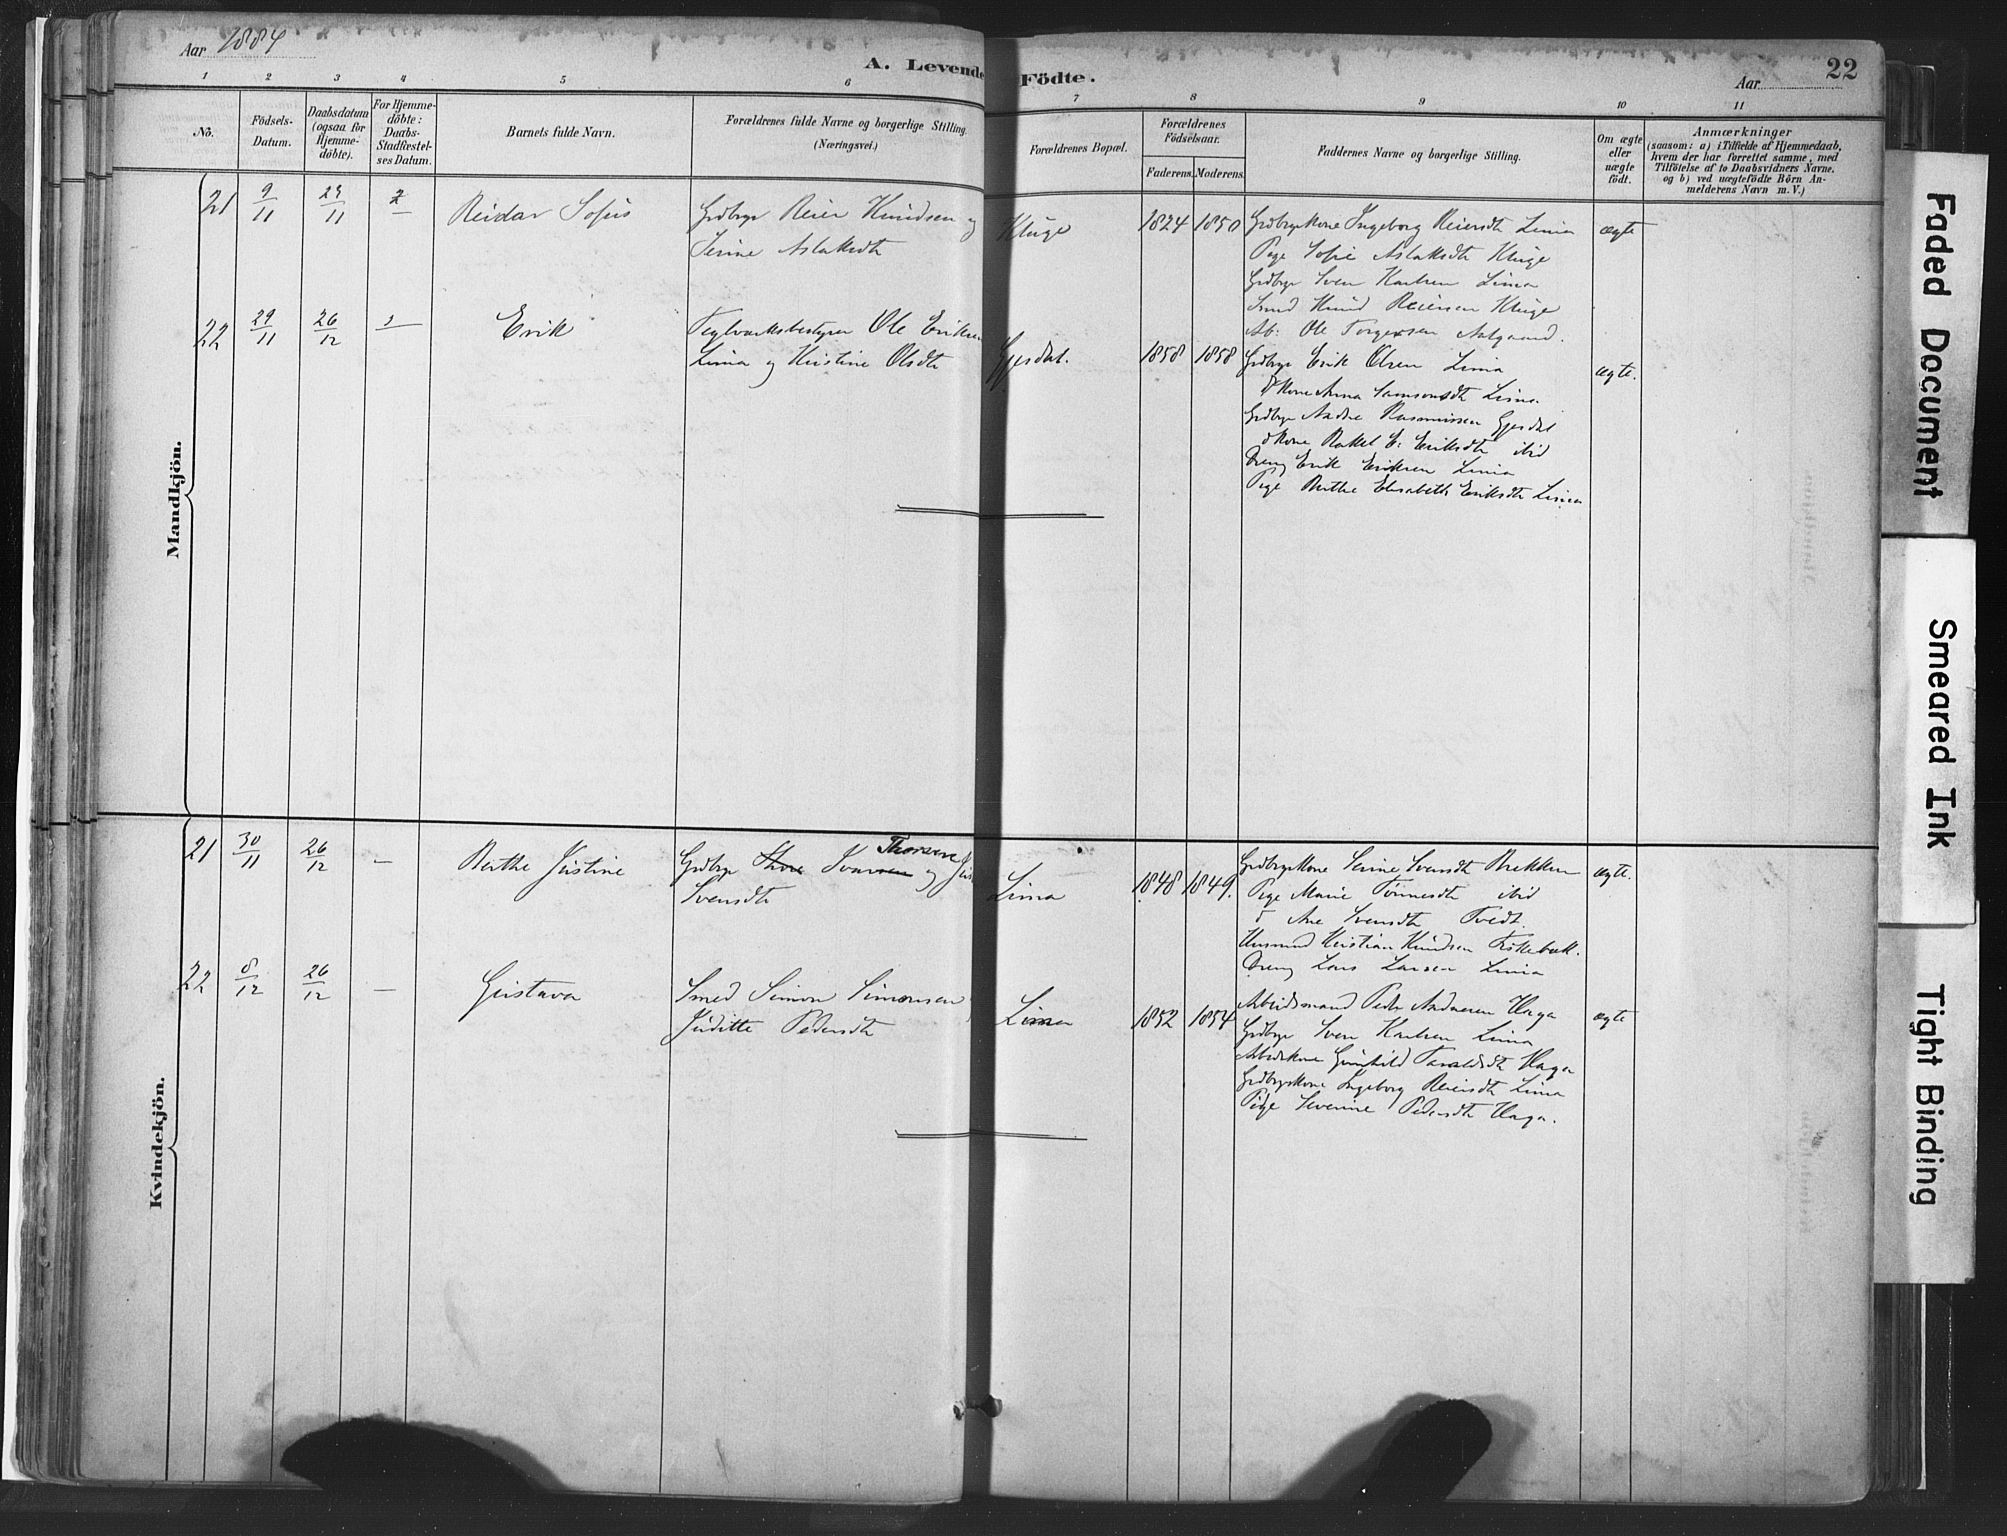 Aar 1884
A. Levende Födte.
Aar
22
1 2 3 4 5 6 7 8 9 10 11
No.
Födsels-Datum.
Daabsdatum (ogsaa for Hjemme-döbte).
For Hjemme-döbte: Daabs-Stadfæstel-ses Datum.
Barnets fulde Navn.
Forældrenes fulde Navne og borgerlige Stilling.
(Næringsvei.)
Forældrenes Bopæl.
Forældrenes Födselsaar.
Faderens. Moderens.
Faddernes Navne og borgerlige Stilling.
Om ægte eller uægte födt.
Anmærkninger
(saasom: a) i Tilfælde af Hjemmedaab,
hvem der har forrettet samme, med
Tilföielse af to Daabsvidners Navne.
og b) ved uægtefödte Börn An-
melderens Navn m. V.)
Mandkjön.
21 9/11 29/11 Reidar Sofus
Grdbrgr Reier Knudsen og
Serine Aslaksdt
Kluge 1824 1850 ægte
Grdbrgrkone Ingeborg Reiersdt Lima
Pige Sofie Aslaksdt Kluge
Grdbrgr Sven Karlsen Lima
Knud Reiersen Kluge
Arb: Ole Torgersen Aalgaard.
22 29/11 26/12 Erik
Teglværksbestyrer Ole Eriksen
Lima og Kristine Olsdt
Gjesdal. 1858 1858 ægte.
Grdbrgr Erik Olsen Lima
Kone Anna Samsonsdt Lima
Grdbrgr Andre Rasmussen Gjesdal
Kone Rakel E. Eriksdt ibid
Dreng Erik Eriksen Lima
Pige Berthe Elisabeth Eriksdt Lima
Kvindekjön.
21 30/11 26/12 — Berthe Justine
Thorsen
Grdbrgr Thore Ivarsen og
Svensdt
Lima 1848 1849. ægte.
Grdbrgrkone Serine Svensdt Brekken
Pige Marie Tönnesdt ibid
Ane Svensdt Tvedt
Husmand Kristian Knudsen Fiskebæk.
Dreng Lars Larsen Lima
22 8/12 26/12 — Gustava
Smed Simon Simonsen
Juditte Pedersdt
Lima 1852 1854 ægte
Arbeidsmand Peder Andersen Haga
Grdbrgr Sven Karlsen Lima
Arbeidskone Gunhild Taraldsdt Haga
Grdbrgrkone Ingeborg Reiersdt Lima
Pige Severine Pedersdt Haga.
Faded Document
Smeared Ink
Tight Binding